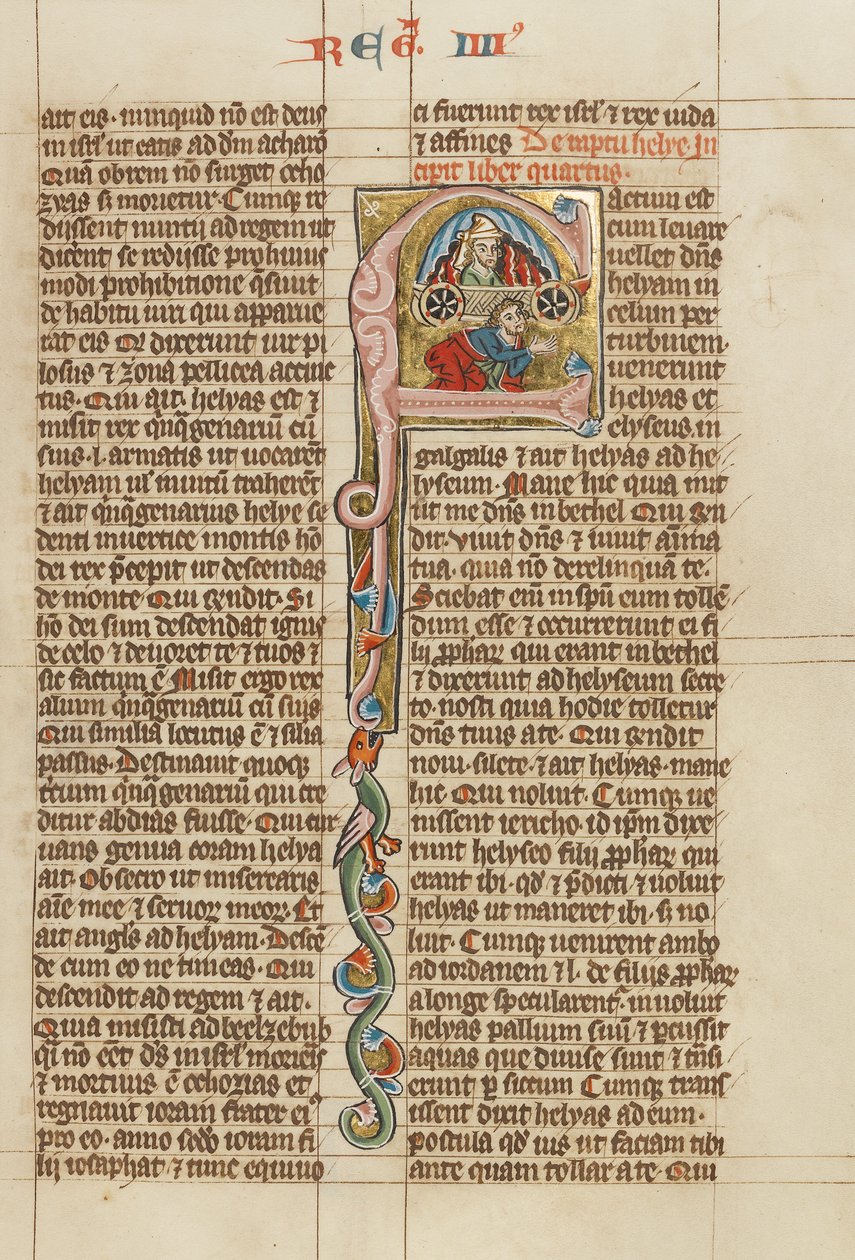 REḠ. IIIIꝰ
ait eis · nunquid nō est deus
in isrł ut eatis ad dm̄ acharō
Quā obrem nō surget ocho
zyas sꝫ morietur · Cumqꝫ re
dijssent nuntij ad regem ut
dicerēt se redijsse prohitius
modi prohibitione q̄siuit
de habitu uiri qui apparue
rat eis Qui dixerunt uir pi
losus ⁊ zona pellicea accinc
tus · Qui ait · helyas est ⁊
misit rex quīq̄genariū cū
suis · l · armatis ut uocarēt
helyam uł inuitū traherēt
⁊ ait quīq̄genarius helye se
denti in uertice montis hō
dei rex p̄cepit ut descendas
de monte Qui r̄ndit · Si
hō dei sum descendat ignis
de celo ⁊ deuoret te ⁊ tuos ⁊
sic factum ē Misit ergo rex
alium quīq̄genariū cū suis
Qui similia locutus ē ⁊ silia
passus · Destinauit quoqꝫ
t̄cium quīq̄genariū qui cre
ditur abdias fuisse · Qui cur
uans genua coram helya
ait · Obsecro ut miserearis
aīe mee ⁊ seruoꝝ meoꝝ · Et
ait angls̄ ad helyam · Descē
de cum eo ne timeas · Qui
descendit ad regem ⁊ ait ·
Quia misisti ad beelzebub
q̄i nō eēt ds̄ in isrł morieris
⁊ mortuus ē ochozias et
regnauit ioram frater eiꝰ
pro eo · anno scd̄o ioram fi
lij iosaphat ⁊ tunc equiuo
ci fuerunt rex isrł ⁊ rex iuda
⁊ affines De raptu helye In
cipit liber quartus ·
Factum est
cum leuare
uellet dn̄s
helyam in
celum per
turbinem ·
uenerunt
helyas et
elyseus in
galgalis ⁊ ait helyas ad he
lyseum · Mane hic quia mit
tit me dn̄s in bethel Qui r̄n
dit · viuit dn̄s ⁊ uiuit aīma
tua · quia nō derelinquā te ·
Sciebat eni in spū eum tollē
dum esse ⁊ occurrerunt ei fi
lij ꝓphaꝝ qui erant in bethel
⁊ dixerunt ad helyseum secre
to · nosti quia hodie tolletur
dn̄s tuus a te · Qui r̄ndit
noui · silete · ⁊ ait helyas · mane
hic · Qui noluit · Cumqꝫ ue
nissent iericho · id ip̄m dixe
runt helyseo filij ꝓphaꝝ qui
erant ibi · qd̄ ⁊ p̄dicti ⁊ uoluit
helyas ut maneret ibi · sꝫ no
luit · Cumqꝫ uenirent ambo
ad iordanem ⁊ l · de filijs ꝓphaꝝ
a longe specularent̄ · inuoluit
helyas pallium suū ⁊ ꝑcussit
aquas que diuise sunt ⁊ tn̄si
erunt ꝑ siccum Cumqꝫ trans
issent dixit helyas ad eum ·
postula qd̄ uis ut faciam tibi
ante quam tollar a te · Qui